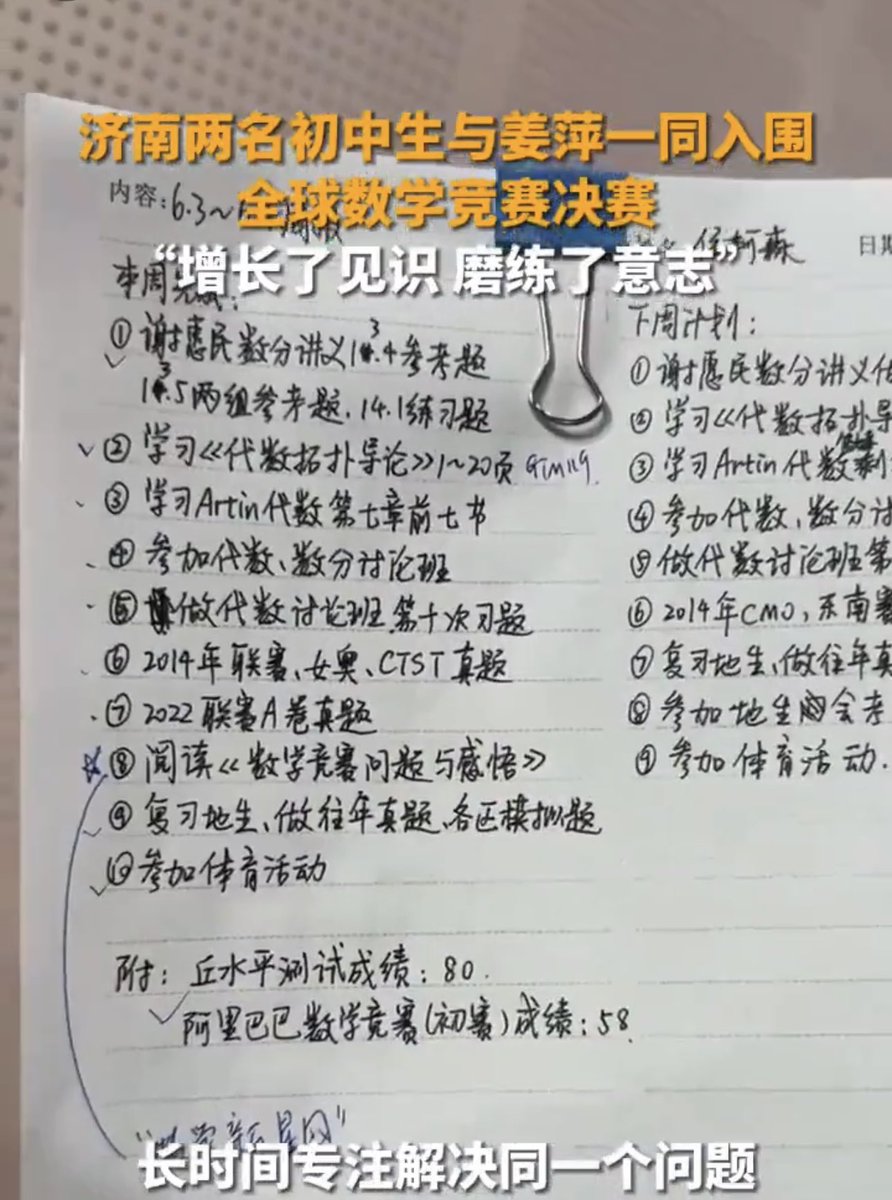 济南两名初中生与姜萍一同入围
全球数学竞赛决赛
“增长了见识 磨练了意志”
内容：6.3～
日期
本周完成：
① 谢惠民数分讲义13.4参考题
13.5两组参考题、14.1练习题
② 学习《代数拓扑导论》1～20页 GTM119
③ 学习Artin代数第七章前七节
④ 参加代数、数分讨论班
⑤ 做代数讨论班第十次习题
⑥ 2014年联赛、女奥、CTST真题
⑦ 2022联赛A卷真题
⑧ 阅读《数学竞赛问题与感悟》
⑨ 复习地生、做往年真题、各区模拟题
⑩ 参加体育活动
附：丘水平测试成绩：80.
阿里巴巴数学竞赛（初赛）成绩：58.
下周计划：
① 谢惠民数分讲义
② 学习《代数拓扑导
③ 学习Artin代数
④ 参加代数、数分讨
⑤ 做代数讨论班第
⑥ 2014年CMO、东南赛
⑦ 复习地生、做往年真
⑧ 参加地生会考
⑨ 参加体育活动.
长时间专注解决同一个问题